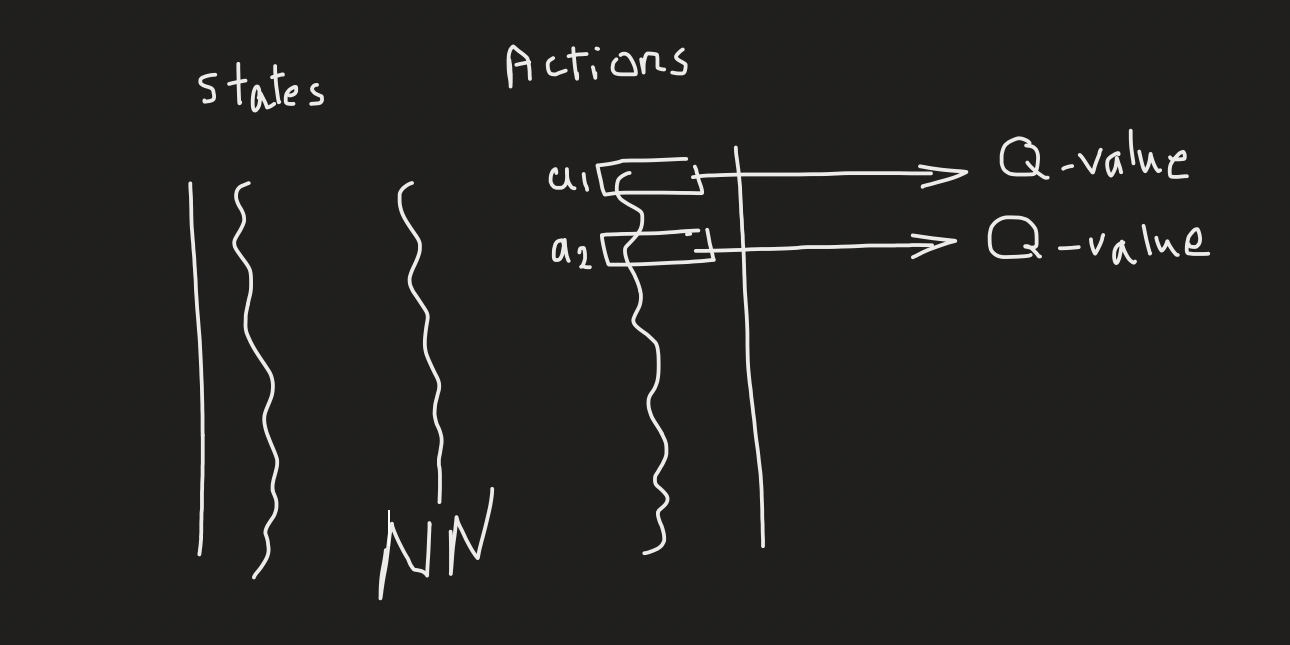 States
Actions
a1
Q-value
a2
Q-value
NN